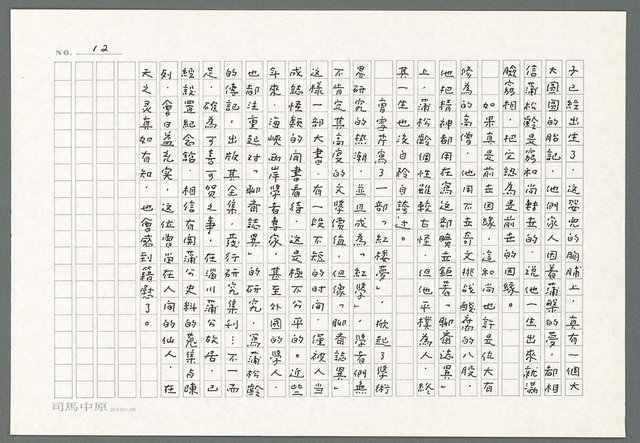 NO. 12
子已經出生了,這嬰兒的胸脯上,真有一個大
大圓圓的胎記,他們家人因着蒲槃的夢,都相
信蒲松齡是窮和尚轉世的,說他一生出來就滿
臉窮相,把它認為是前世的因緣。
如果真是前世因緣,這和尚也許是位大有
修為的高僧,他用不世奇文挑戰酸腐的八股,
他把精神都用在寫這部曠世鉅著「聊齋誌異」
上,蒲松齡個性雖較古怪,但他平樸為人,終
其一生也沒自矜自誇過。
曹雪芹寫了一部「紅樓夢」,掀起了學術
界研究的熱潮,並且成為「紅學」,學者們無
不肯定其高度的文學價值,但像「聊齋誌異」
這樣一部大書,有一段不短的時間,僅被人當
成誌怪類的閒書看待,這是極不公平的。近些
年來,海峽兩岸學者專家,甚至外國的學人,
也都注重起對「聊齋誌異」的研究,為蒲松齡
的傳記,出版其全集,發行研究集刊…不一而
足,確為可喜可賀之事,在淄川蒲公故居,已
經設置紀念館,相信有關蒲公史料的蒐集與陳
列,會日益充實,這位曾留在人間的仙人,在
天之靈真如有知,也會感到籍慰了。
司馬中原 25×20=500